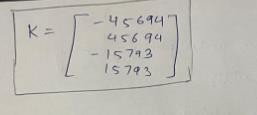 K = [ -45694
45694
-15793
15793 ]